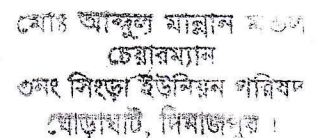 মোঃ আব্দুল মান্নান মন্ডল
চেয়ারম্যান
৩নং সিংড়া ইউনিয়ন পরিষদ
ঘোড়াঘাট, দিনাজপুর।